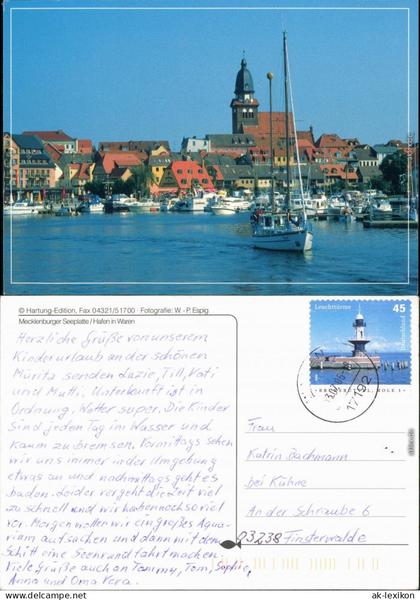 © Hartung-Edition, Fax 04321/51700 · Fotografie: W.-P. Espig
Mecklenburger Seeplatte / Hafen in Waren
Herzliche Grüße von unserem
Kinderurlaub an der schönen
Müritz senden Luzie, Till, Kati
und Mutti. Unterkunft ist in
Ordnung, Wetter super. Die Kinder
sind jeden Tag im Wasser und
kaum zu bremsen. Vormittags sehen
wir uns immer in der Umgebung
etwas an und nachmittags geht es
baden. Leider vergeht die Zeit viel
zu schnell und wir haben noch so viel
vor. Morgen wollen wir ein großes Aqua-
rium aufsuchen und dann mit dem
Schiff eine Seenrundfahrt machen.
Viele Grüße auch an Tommy, Tom, Sophie,
Anna und Oma Vera.
Leuchttürme
45
17192
Frau
Katrin Bachmann
bei Kühne
An der Schraube 6
03238 Finsterwalde
www.ansichtskarten-lexikon.de
ak-lexikon.de